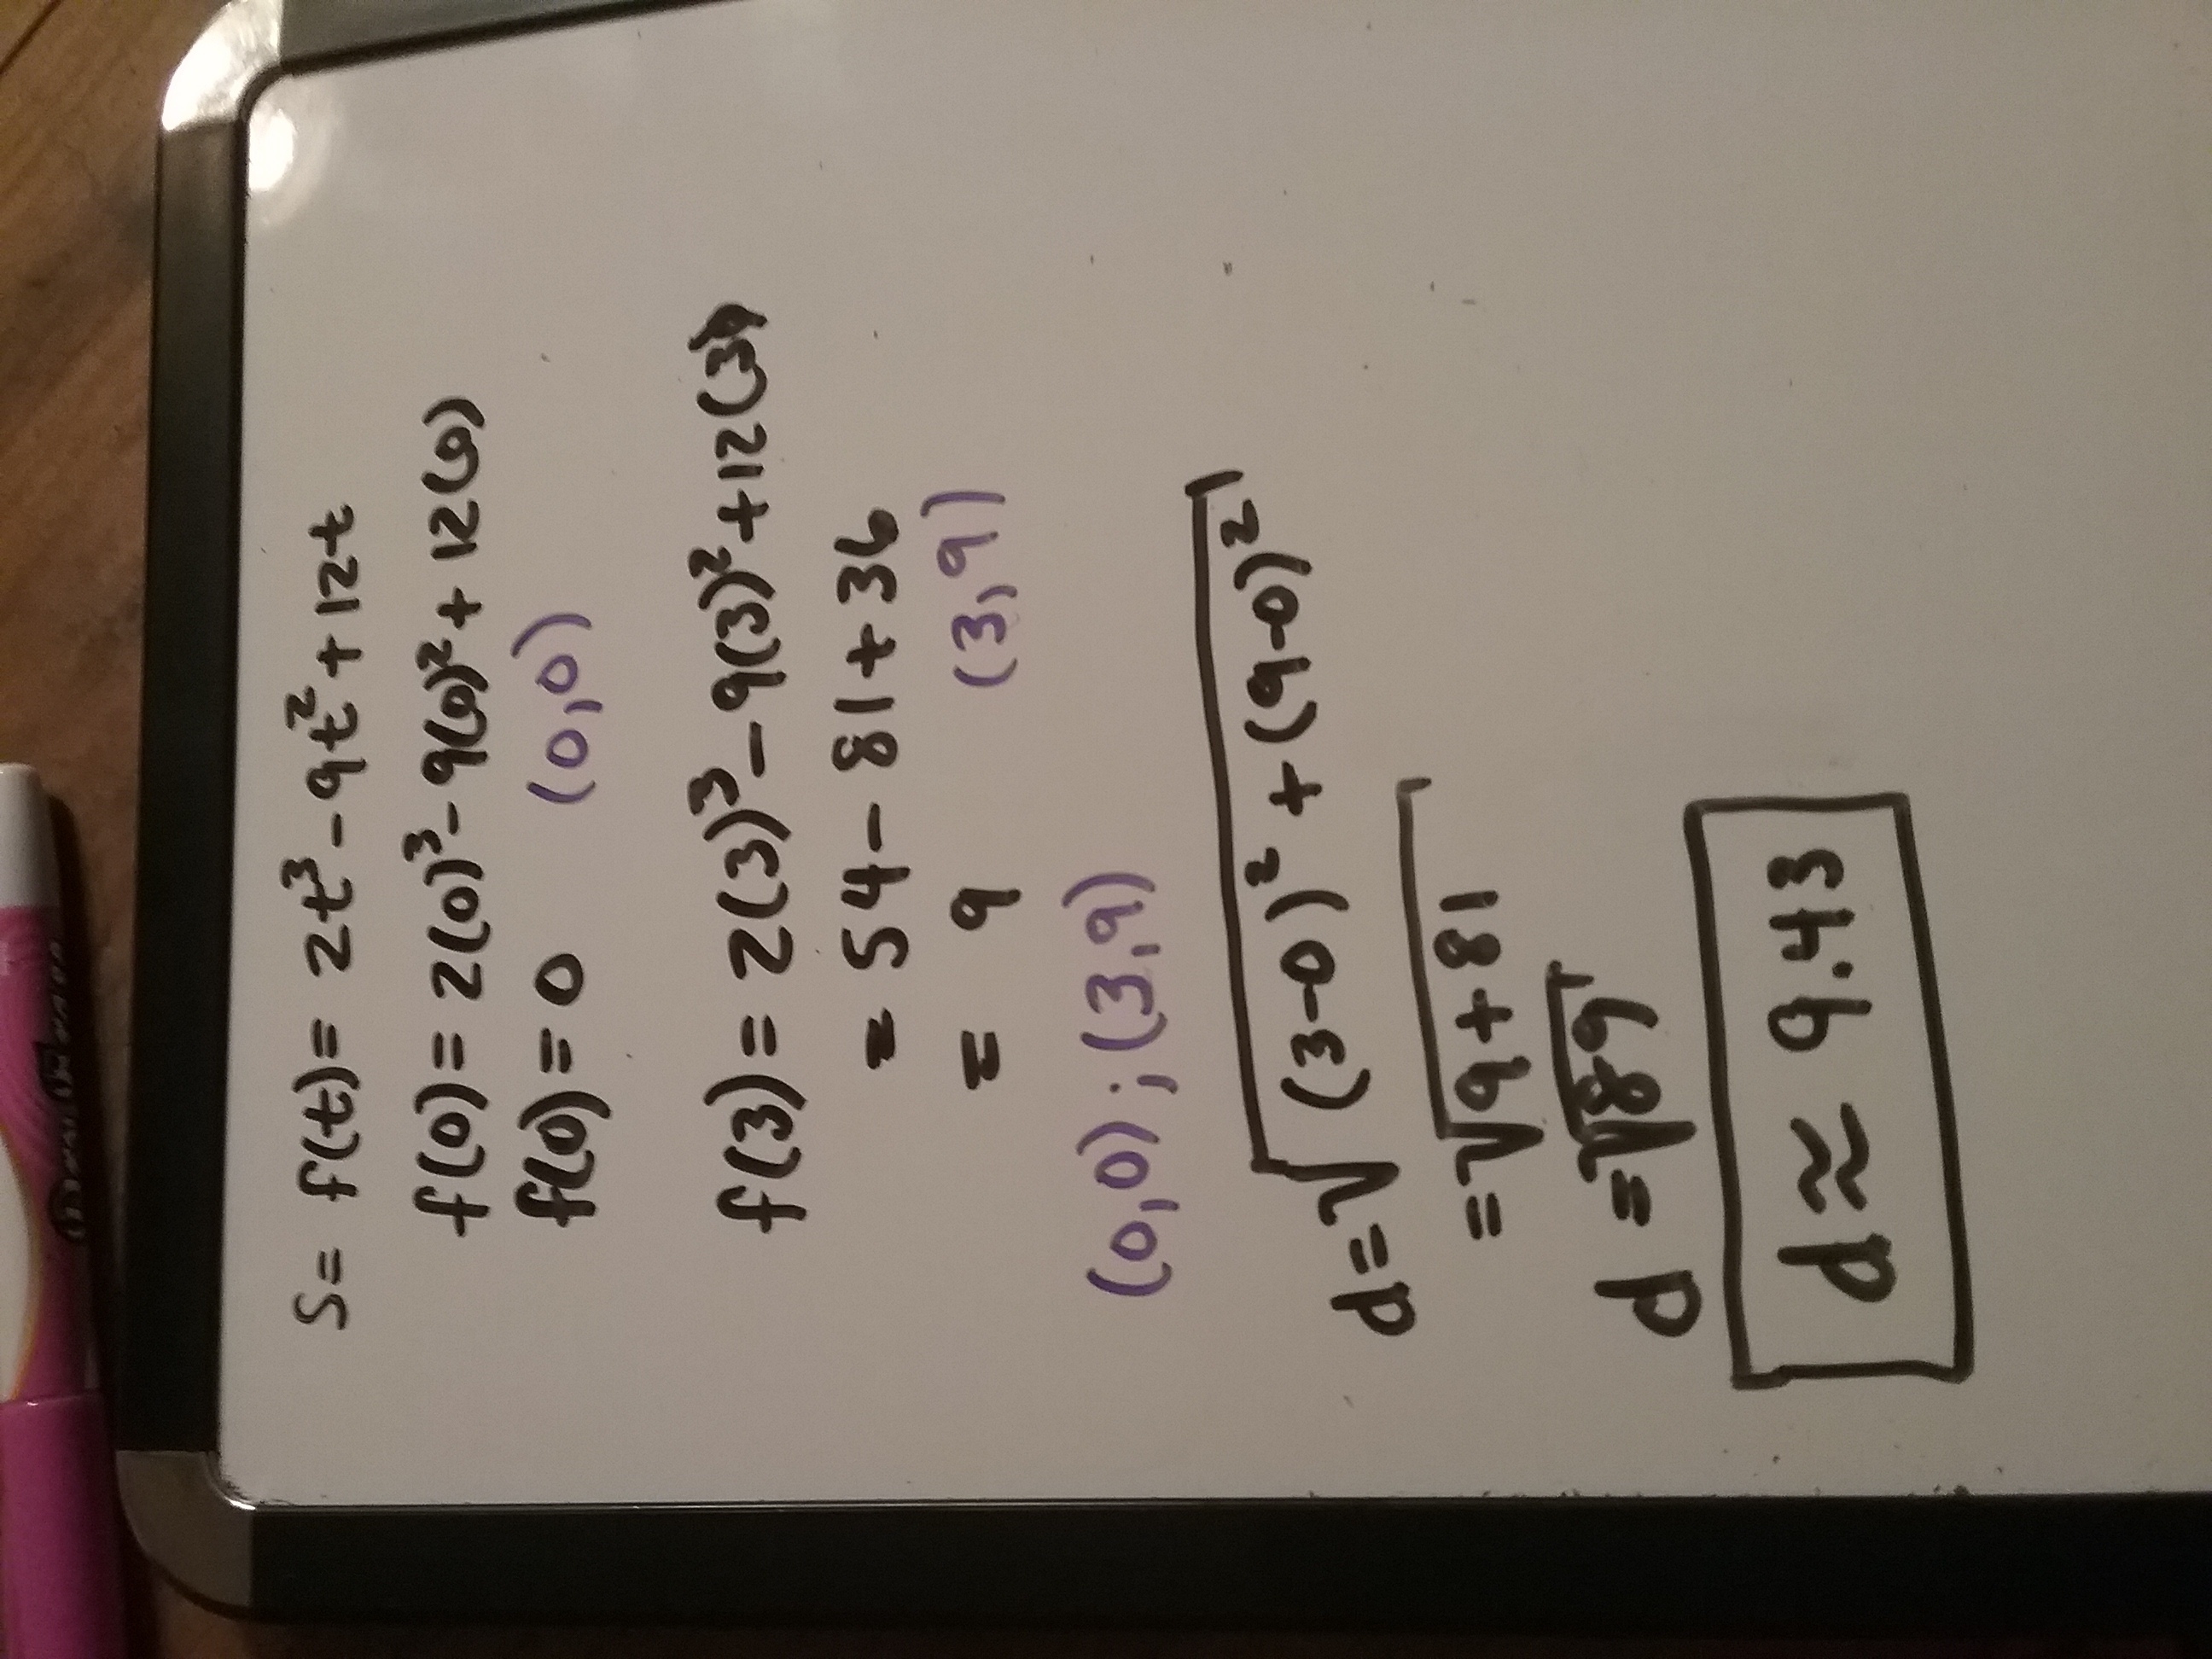 S = f(t) = 2t³ - 9t² + 12t
f(0) = 2(0)³ - 9(0)² + 12(0)
f(0) = 0 (0,0)
f(3) = 2(3)³ - 9(3)² + 12(3)
= 54 - 81 + 36
= 9 (3,9)
(0,0) ; (3,9)
d = √(3-0)² + (9-0)²
= √9 + 81
d = √89
d ≈ 9.43